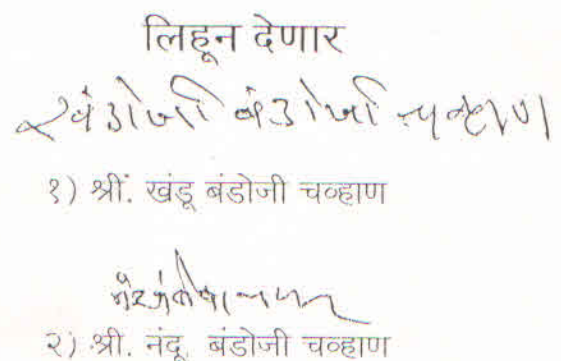 लिहून देणार
खंडोजी बंडोजी चव्हाण
१) श्रीं. खंडू बंडोजी चव्हाण
२) श्री. नंदू. बंडोजी चव्हाण